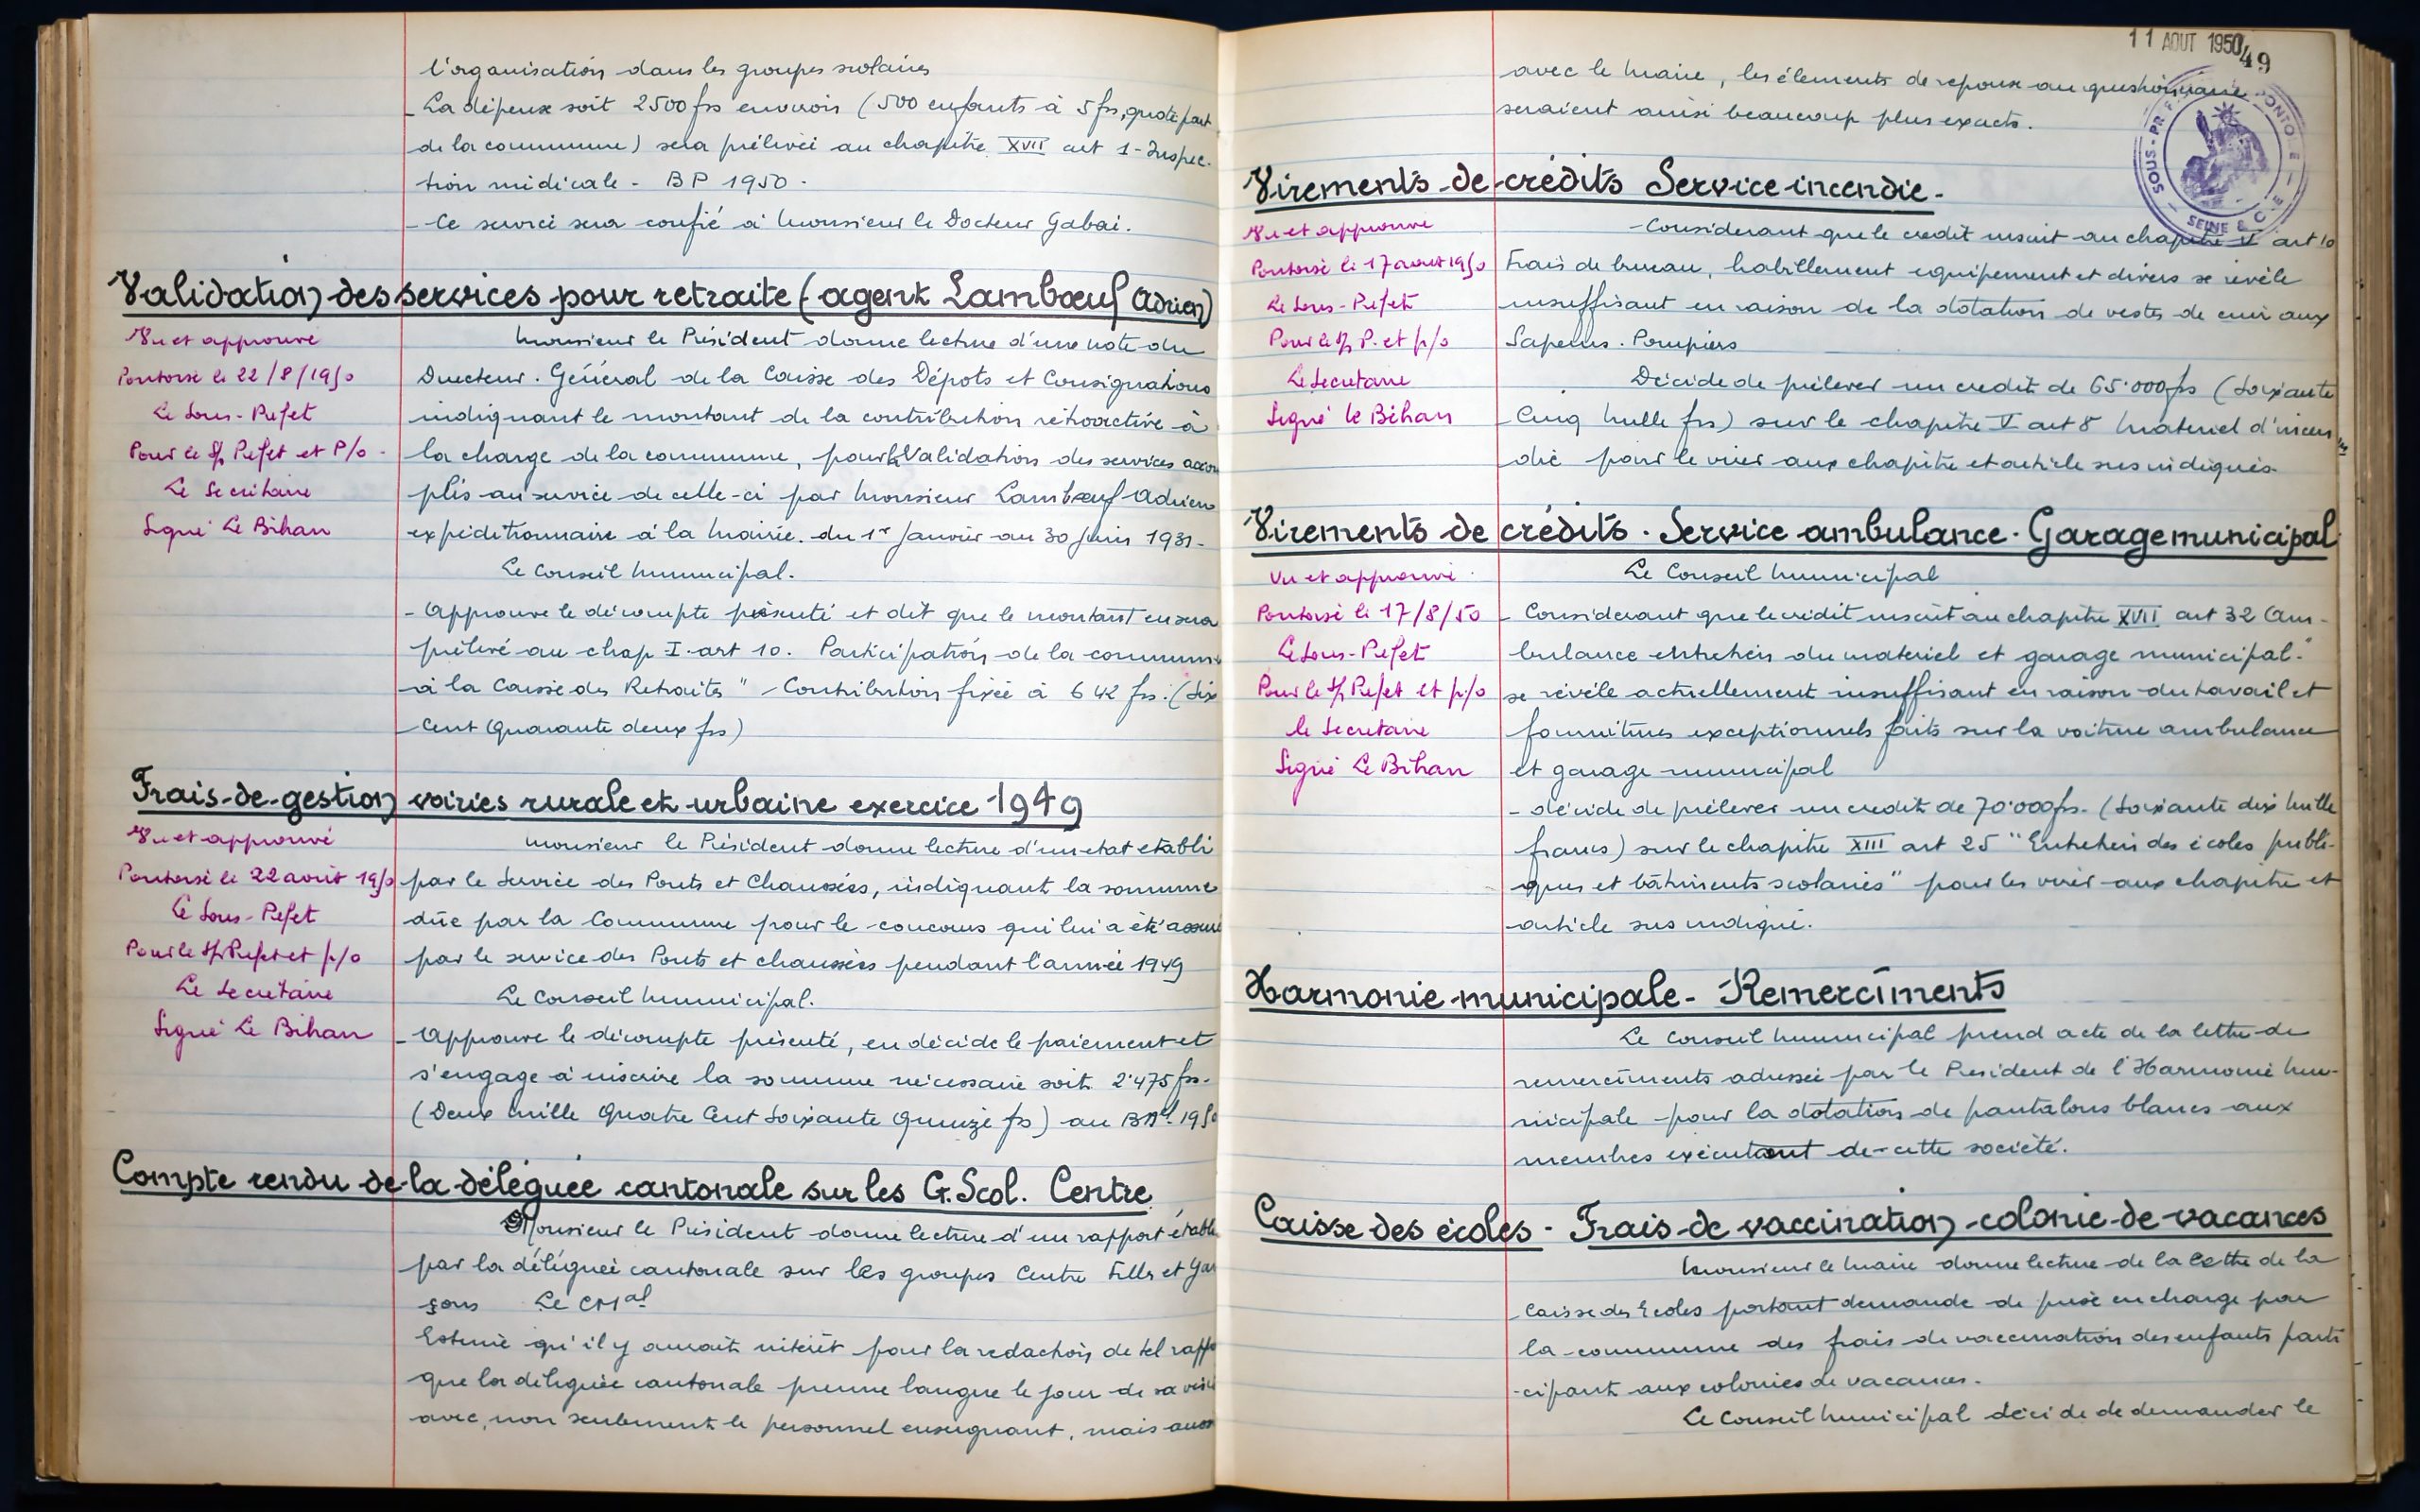 l'organisation dans les groupes scolaires
- La dépense soit 2500 frs environ (500 enfants à 5 frs, quote part
de la commune) sera prélevée au chapitre XVII art 1 - Inspec-
tion médicale - BP 1950.
- Ce service sera confié à Monsieur le Docteur Gabai.
Validation des services pour retraite (agent Lambœuf Adrien)
Vu et approuvé
Pontoise le 22/8/1950
Le Sous-Préfet
Pour le S/ Préfet et P/o -
Le Secrétaire
Signé Le Bihan
Monsieur le Président donne lecture d'une note du
Directeur. Général de la Caisse des Dépots et Consignations
indiquant le montant de la contribution rétroactive à
la charge de la commune, pour la Validation des services accom
plis au service de celle-ci par Monsieur Lambœuf Adrien
expéditionnaire à la Mairie. du 1er Janvier au 30 Juin 1931-
Le Conseil Municipal.
- Approuve le décompte présenté et dit que le montant en sera
prélevé au chap I. art 10. Participation de la commune
à la Caisse des Retraites" - Contribution fixée à 642 frs. (Six
Cent Quarante deux frs)
Frais-de-gestion voiries rurale et urbaine exercice 1949
Vu et approuvé
Pontoise le 22 août 1950
Le Sous-Préfet
Pour le S/Préfet et p/o
Le Secrétaire
Signé Le Bihan
Monsieur le Président donne lecture d'un état établi
par le Service des Ponts et Chaussées, indiquant la somme
dûe par la Commune pour le concours qui lui a été assuré
par le service des Ponts et chaussées pendant l'année 1949
Le Conseil Municipal.
- Approuve le décompte présenté, en décide le paiement et
s'engage à inscrire la somme nécessaire soit 2.475 frs.
(Deux Mille Quatre Cent Soixante Quinze frs) au 1950
Compte rendu de la déléguée cantonale sur les G. Scol. Centre
Monsieur le Président donne lecture d'un rapport établi
par la déléguée cantonale sur les groupes Centre Filles et Gar
çons Le CMal
Estime qu'il y aurait intérêt pour la rédaction de tel rappo
que la déléguée cantonale prenne langue le jour de sa visite
avec, non seulement le personnel enseignant, mais aussi
11 AOUT 1950
49
SOUS-PRÉF PONTOISE
SEINE & OISE
avec le Maire, les éléments de réponse au questionnaire
seraient ainsi beaucoup plus exacts.
Virements-de-crédits Service incendie-
Vu et approuvé
Pontoise le 17 août 1950
Le Sous-Préfet
Pour le S/ P. et p/o
Le Secrétaire
Signé le Bihan
- Considerant que le crédit inscrit au chapitre V art 10
Frais de bureau, habillement equipement et divers se révèle
insuffisant en raison de la dotation de vestes de cuir aux
Sapeurs. Pompiers
Décide de prélever un credit de 65.000 frs (Soixante
Cinq Mille frs) sur le chapitre V art 8 Matériel d'incen
die pour le virer aux chapitre et article sus indiqués
Virements de crédits. Service ambulance. Garage municipal
Vu et approuvé
Pontoise le 17/8/50
Le Sous-Préfet
Pour le S/ Préfet et p/o
le Secretaire
Signé Le Bihan
Le Conseil Municipal
- Considerant que le crédit inscrit au chapitre XVII art 32 Am-
bulance entretien du matériel et garage municipal."
se révèle actuellement insuffisant en raison du travail et
fournitures exceptionnels faits sur la voiture ambulance
et garage municipal
- décide de prélever un credit de 70.000 frs. (Soixante dix Mille
francs) sur le chapitre XIII art 25 "Entretien des écoles publi-
ques et bâtiments scolaires" pour les virer aux chapitre et
article sus indiqué.
Harmonie municipale - Remerciments
Le Conseil Municipal prend acte de la lettre de
remerciments adressée par le President de l'Harmonie Mu-
nicipale pour la dotation de pantalons blancs aux
membres exécutant de cette société.
Caisse des écoles - Frais de vaccination-colonie-de-vacances
Monsieur le Maire donne lecture de la lettre de la
Caisse des Ecoles portant demande de prise en charge par
la commune des frais de vaccination des enfants parti
-cipant aux colonies de vacances.
Le Conseil Municipal décide de demander le